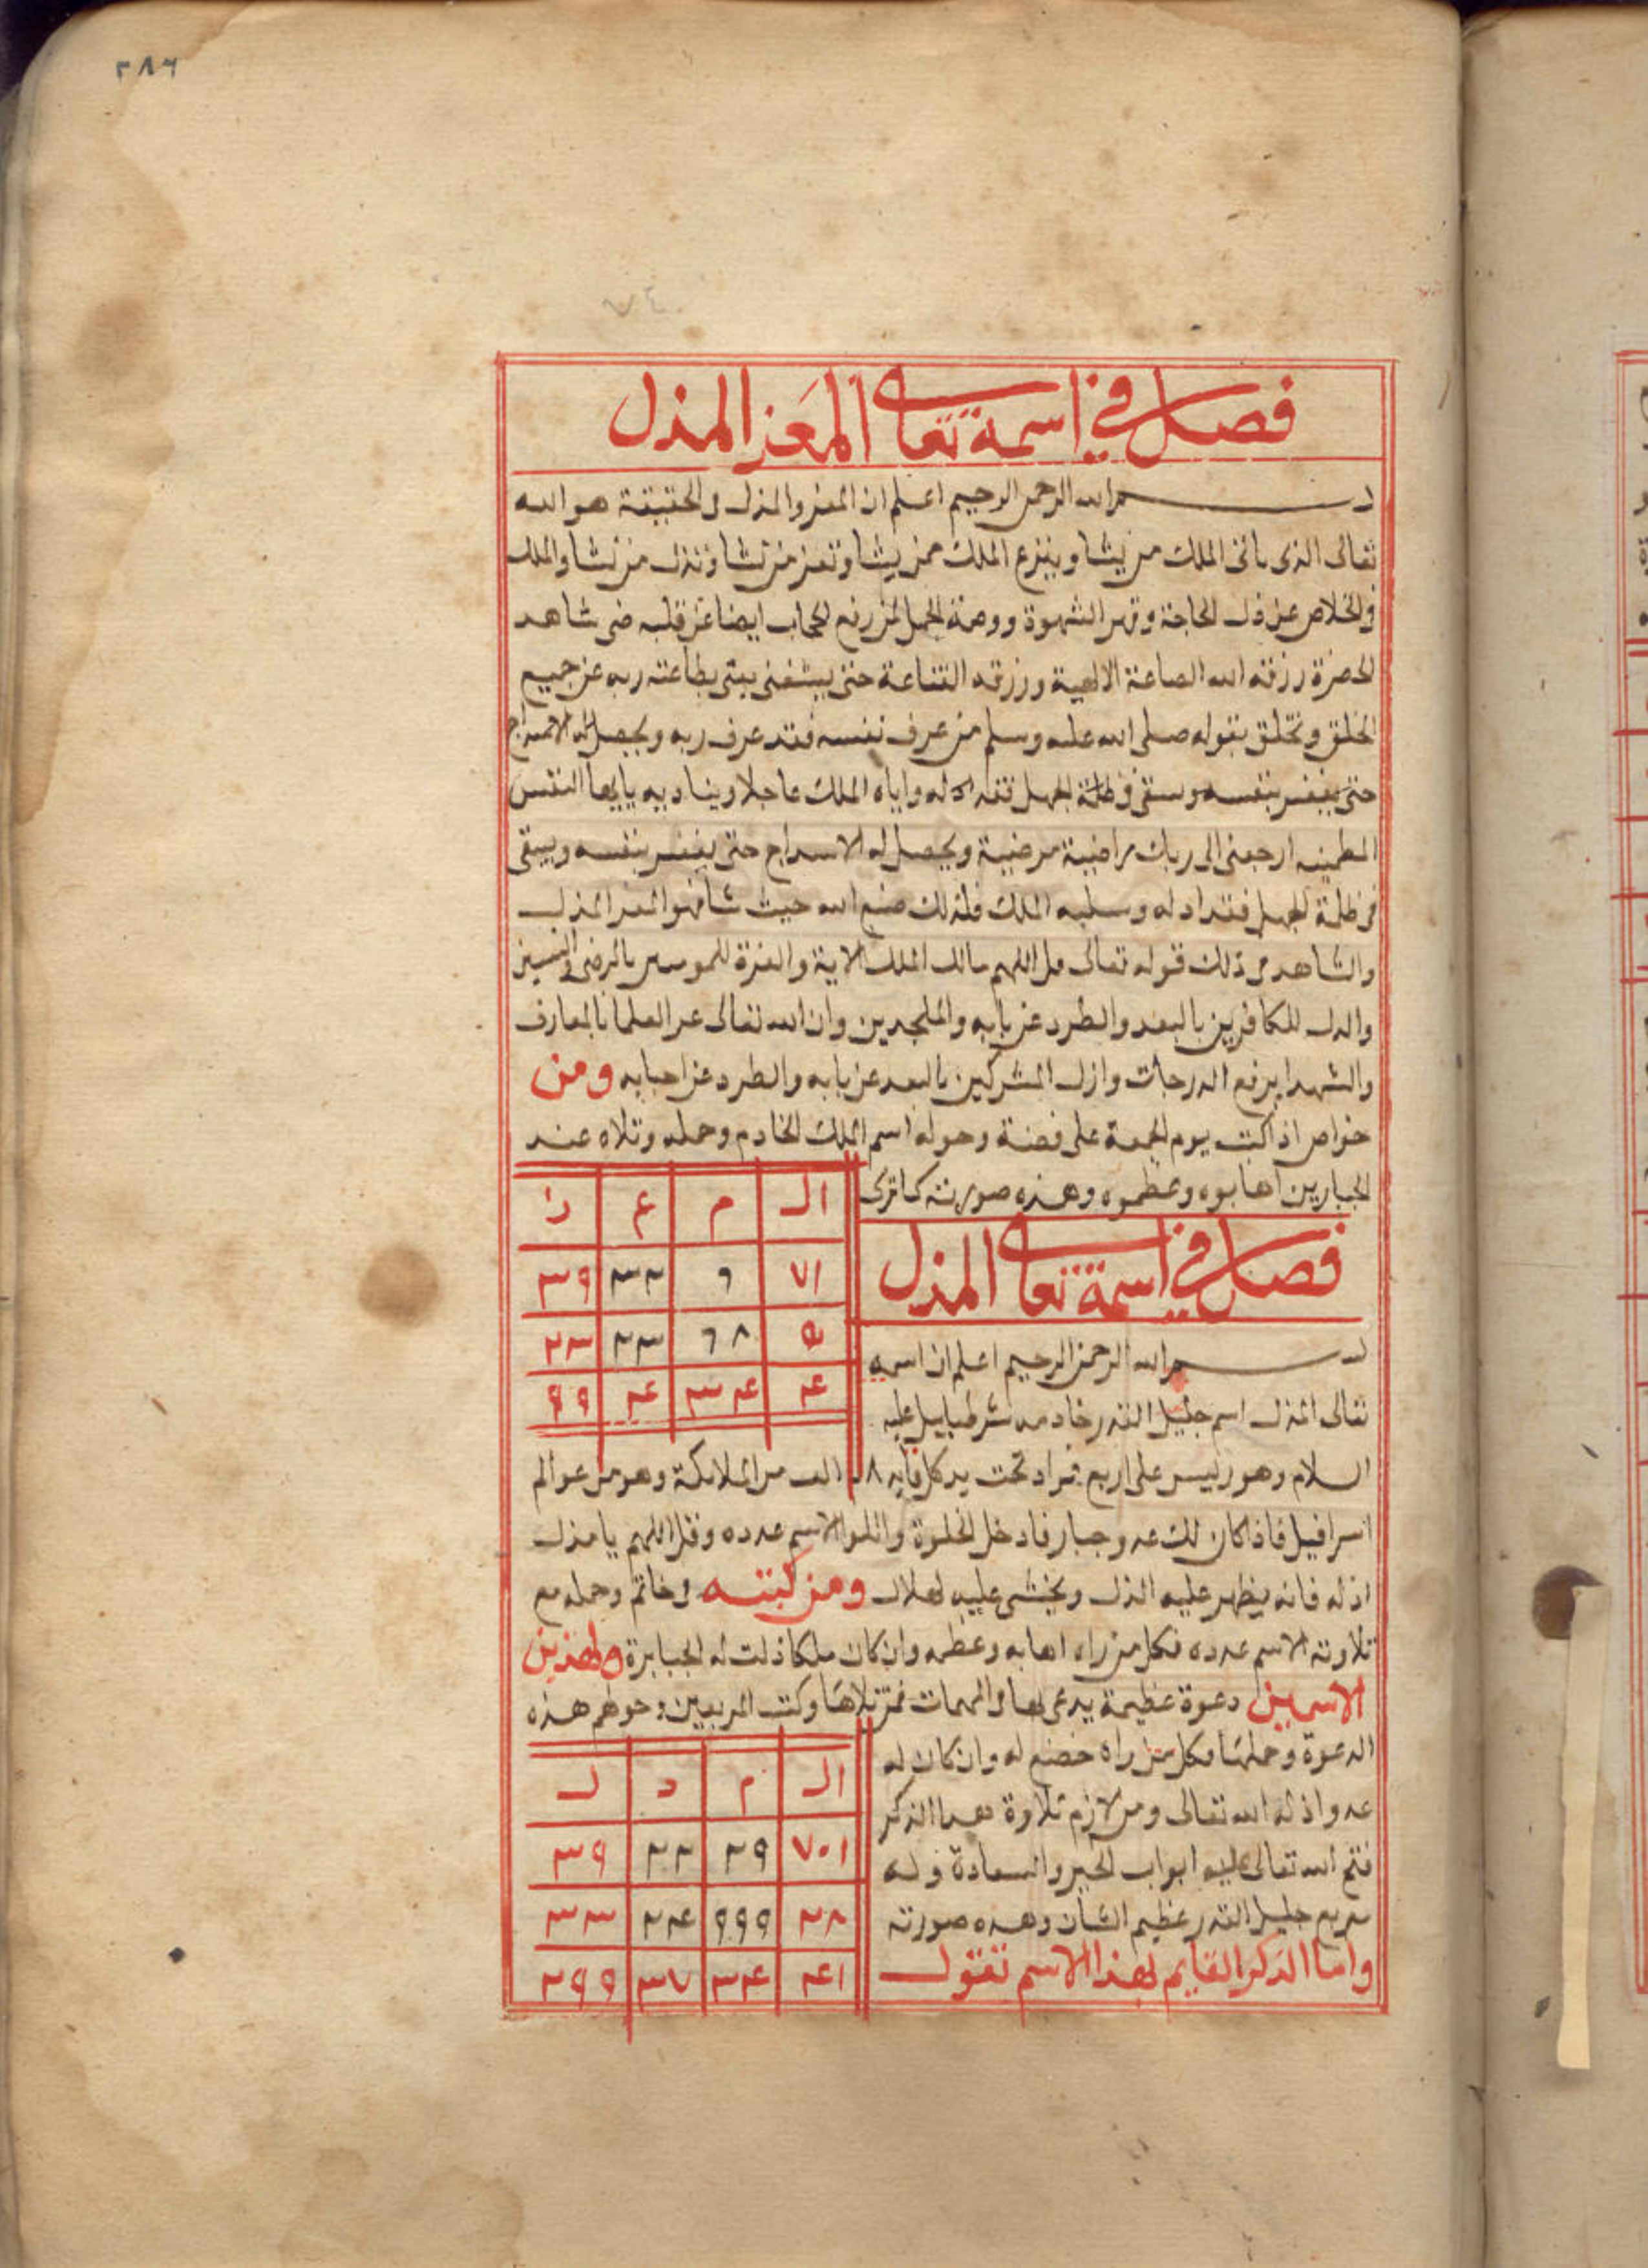 ٣٨٦
فصل في اسمه تعالى المعز المذل
بسم الله الرحمن الرحيم اعلم ان المعز والمذل في الحقيقة هو الله
تعالى الذى ياتى الملك من يشا وينزع الملك ممن يشا وتعز من تشا وتذل من تشا والملك
في الخلاص عن ذل الحاجة وقهر الشهوة ووصمة الجهل فمن رفع الحجاب ايضا عن قلبه حتى شاهد
الحضرة رزقه الله الصاعة الالهية ورزقه القناعة حتى يستغنى بطاعته ربه عن جميع
الخلق وتخلق بقوله صلى الله عليه وسلم من عرف نفسه فقد عرف ربه ويحصل له الاستدراج
حتى يغتر بنفسه وسقى في ظلمة الجهل فقد اذله واياه الملك عاجلا ويناديه يايها النفس
المطمينه ارجعى الى ربك راضية مرضية ويحصل له الاسدراج حتى يغتر بنفسه ويبقى
في ظلمة الجهل فقد اذله وسلبه الملك فلذلك صنع الله حيث شا فهو المعز المذل
والشاهد من ذلك قوله تعالى قل اللهم مالك الملك الاية والعزة للمومنين بالرضى
والذل للكافرين بالبعد والطرد عن بابه والملحدين وان الله تعالى عز العلما بالمعارف
والشهدا برفع الدرجات واذل المشركين بالبعد عن بابه والطرد عن احبابه ومن
خواص اذا كتب يوم الجمعة على فضة وحوله اسم الملك الخادم وحمله وتلاه عند
الجبارين اهابوه وعظموه وهذه صورته كما ترى
ال م ع ز
٧١ ٦ ٣٢ ٣٩
٥ ٦٨ ٢٣ ٢٣
٤ ٣٤ ٤ ٩٩
فصل في اسمه تعالى المذل
بسم الله الرحمن الرحيم اعلم ان اسمه
تعالى المذل اسم جليل القدر خادمه شرطيابيل عليه
السلام وهو رئيس على اربع قواد تحت يد كل قايد ٨ الف من الملائكة وهو من عوالم
اسرافيل فاذا كان لك عدو جبار فادخل الخلوة واتلوا الاسم عدده وقل اللهم يا مذل
اذله فانه يظهر عليه الذل ويخشى عليه الهلاك ومن كتبه في خاتم وحمله مع
تلاوته الاسم عدده فكل من راه اهابه وعظمه وان كان ملكا ذلت له الجبابرة ولهذين
الاسمين دعوة عظيمة يدعى بها في المهمات فمن تلاها وكتب المربعين وحولهم هذه
الدعوة وحملها فكل من راه خضع له وان كان له
عدو اذله الله تعالى ومن لازم تلاوة هذا الذكر
فتح الله تعالى عليه ابواب الخير والسعادة وله
مربع جليل القدر عظيم الشان وهذه صورته
ال م ذ ل
٧٠١ ٢٩ ٢٢ ٣٩
٢٨ ٩٩٩ ٢٤ ٣٣
٤١ ٣٤ ٣٧ ٢٩٩
واما الذكر القايم بهذا الاسم تقول